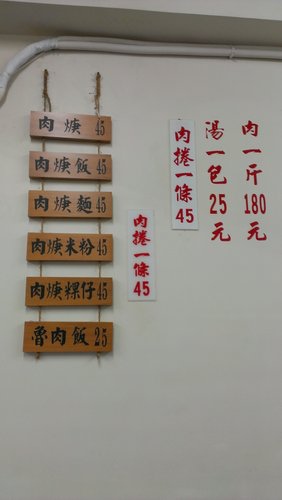 肉焿 45
肉焿飯 45
肉焿麵 45
肉焿米粉 45
肉焿粿仔 45
魯肉飯 25
肉捲一條45
肉捲一條45
湯一包25元
肉一斤180元